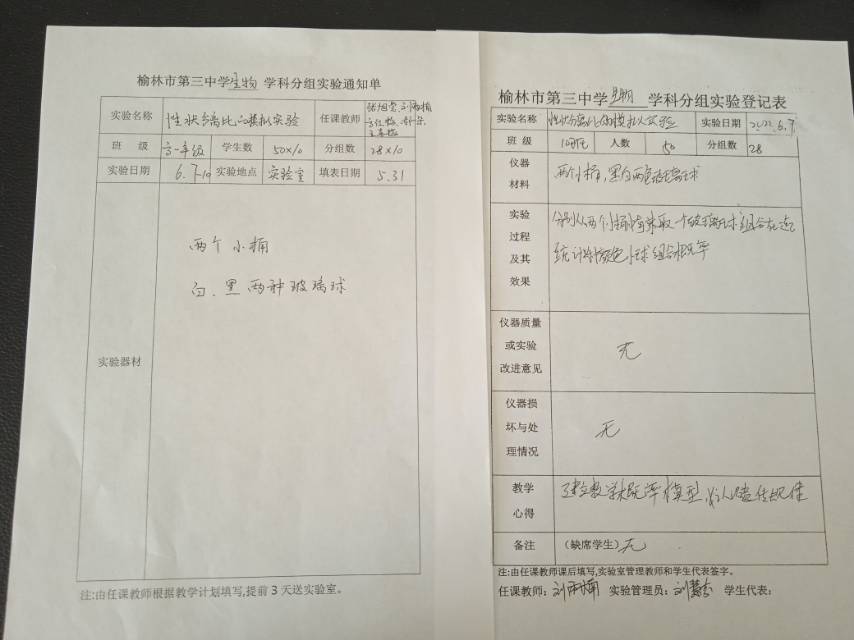 榆林市第三中学生物 学科分组实验通知单
实验名称 性状分离比的模拟实验 任课教师
班 级 高一年级 学生数 50×10 分组数 28×10
实验日期 6.7-10 实验地点 实验室 填表日期 5.31
实验器材
两个小桶
白、黑两种玻璃球
注:由任课教师根据教学计划填写,提前3天送实验室。
榆林市第三中学 学科分组实验登记表
实验名称 性状分离比的模拟实验 实验日期 2022.6.7
班 级 人数 50 分组数 28
仪器
材料
两个小桶,黑白两色玻璃球
实验
过程
及其
效果
分别从两个小桶 取一个玻璃球 组合在一起
统计 小球组合概率
仪器质量
或实验
改进意见
无
仪器损
坏与处
理情况
无
教学
心得
建立数学概率模型
备注 (缺席学生) 无
注:由任课教师课后填写,实验室管理教师和学生代表签字。
任课教师: 实验管理员: 学生代表: